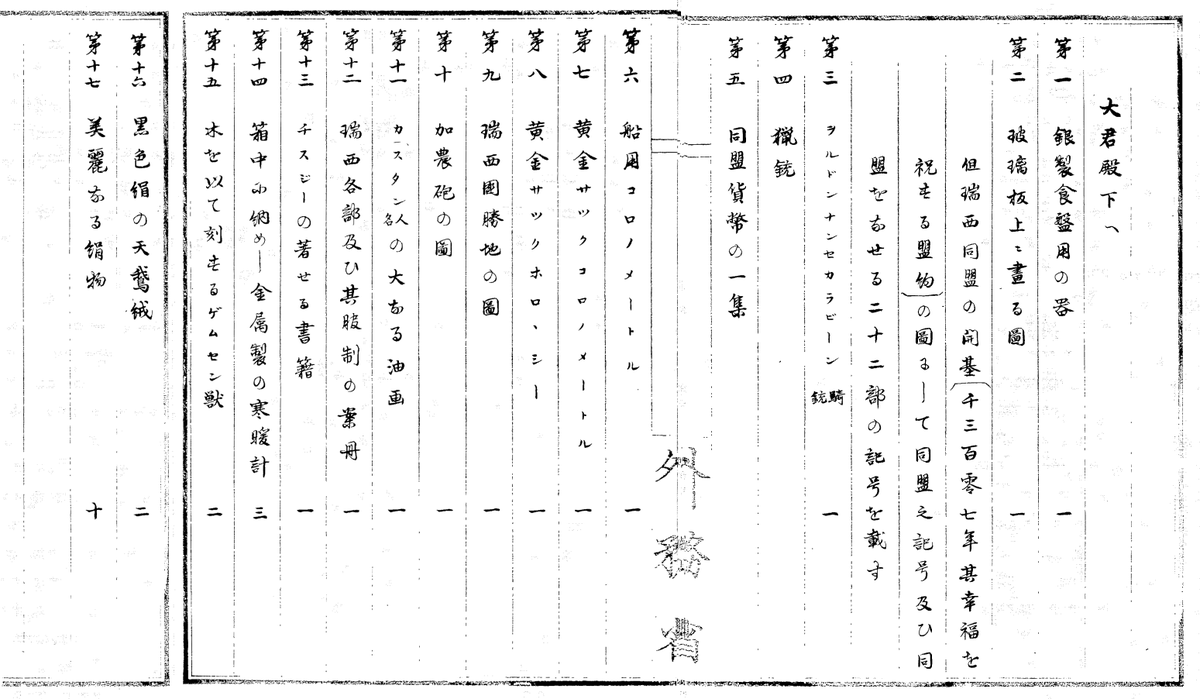 大君殿下へ
第一 銀製食盤用の器 一
第二 玻璃板上ニ畫る圖 一
但瑞西同盟の開基(千三百零七年其幸福を
祝する盟約)の圖にして同盟之記号及ひ同
盟をなせる二十二部の記号を載す
第三 ヲルドンナンセカラビーン 騎銃 一
第四 獵銃
第五 同盟貨幣の一集
外務省
第六 船用コロノメートル 一
第七 黄金サックコロノメートル 一
第八 黄金サックホロヽシー 一
第九 瑞西國勝地の圖 一
第十 加農砲の圖 一
第十一 カースタン人名の大なる油画 一
第十二 瑞西各部及ひ其服制の葉冊 一
第十三 チスジーの著せる書籍 一
第十四 箱中に納めし金属製の寒暖計 三
第十五 木を以て刻するゲムセン獣 二
第十六 黒色絹の天鵞絨 二
第十七 美麗なる絹物 十